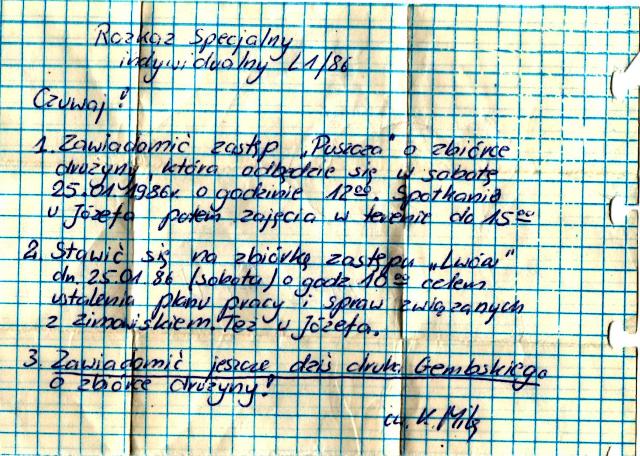 Rozkaz Specjalny
indywidualny L1/86
Czuwaj!
1. Zawiadomić zastęp „Puszcza" o zbiórce
drużyny, która odbędzie się w sobotę
25.01.1986r. o godzinie 12⁰⁰. Spotkanie
u Józefa potem zajęcia w terenie do 15⁰⁰
2. Stawić się na zbiórkę zastępu „Lwów"
dn. 25.01.86 (sobota) o godz. 10⁰⁰ celem
ustalenia planu pracy i spraw związanych
z zimowiskiem. Też u Józefa.
3. Zawiadomić jeszcze dziś druha Gembskiego
o zbiórce drużyny!
ćw. K.